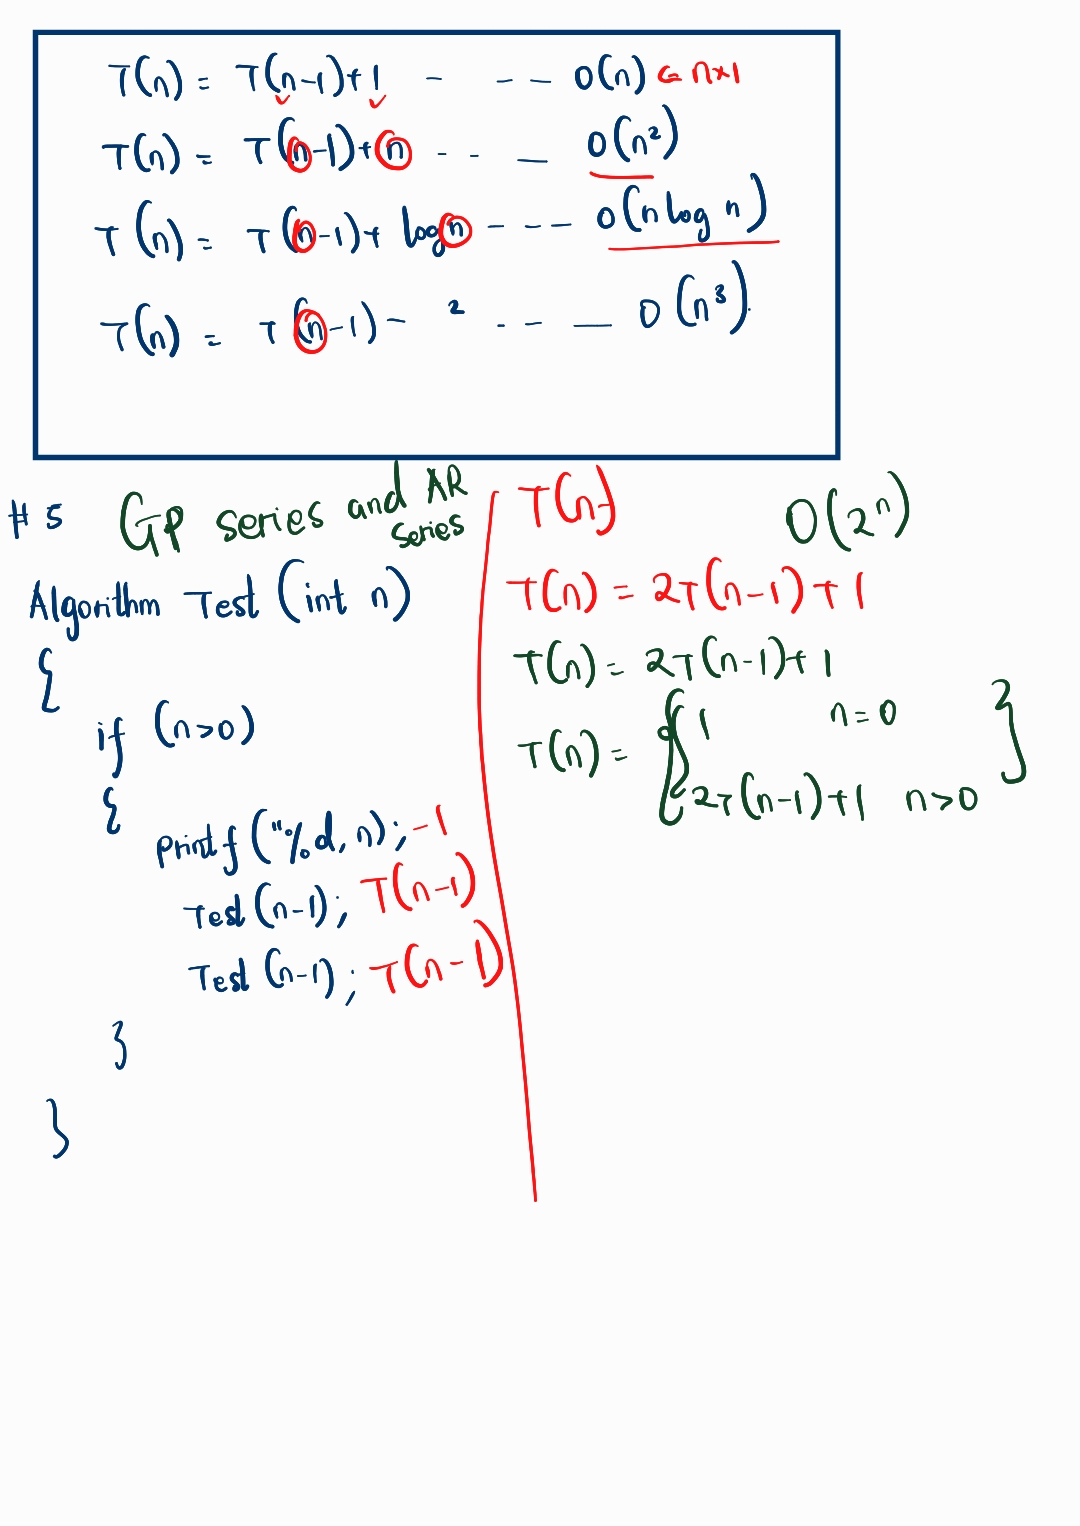 T(n) = T(n-1)+1 - - - O(n) ⊂ n×1
T(n) = T(n-1)+n - - - O(n²)
T(n) = T(n-1)+ log n - - - O(n log n)
T(n) = T(n-1) - ² - - - O(n³).
# 5 GP series and AR series
Algorithm Test (int n)
{
if (n>0)
{
printf ("%d, n); -1
Test (n-1); T(n-1)
Test (n-1); T(n-1)
}
}
T(n) O(2ⁿ)
T(n) = 2T(n-1) + 1
T(n) = 2T(n-1)+ 1
T(n) = { 1 n=0 }
2T(n-1)+1 n>0